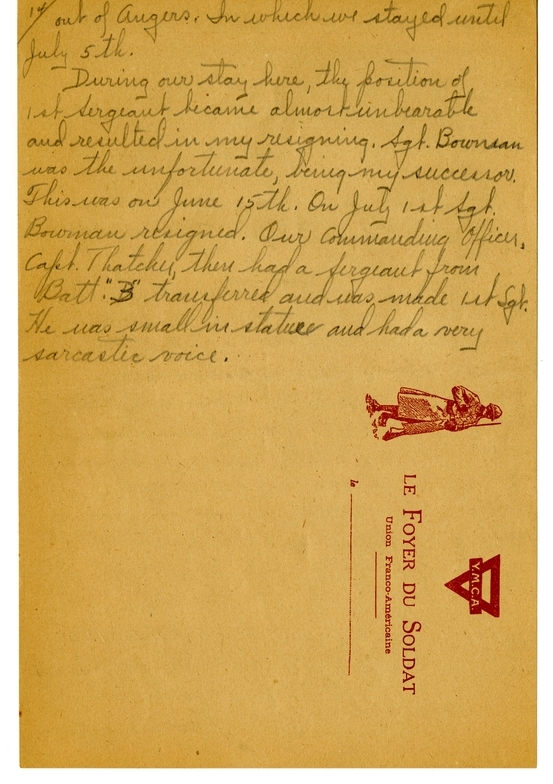 14/ out of Angers. In which we stayed until
July 5th.
During our stay here, the position of
1st Sergeant became almost unbearable
and resulted in my resigning. Sgt. Bowman
was the unfortunate, being my successor.
This was on June 15th. On July 1st Sgt.
Bowman resigned. Our Commanding Officer,
Capt. Thatcher, then had a Sergeant from
Batt. "B" transferred and was made 1st Sgt.
He was small in stature and had a very
sarcastic voice.
Y.M.C.A.
LE FOYER DU SOLDAT
Union Franco-Américaine
le